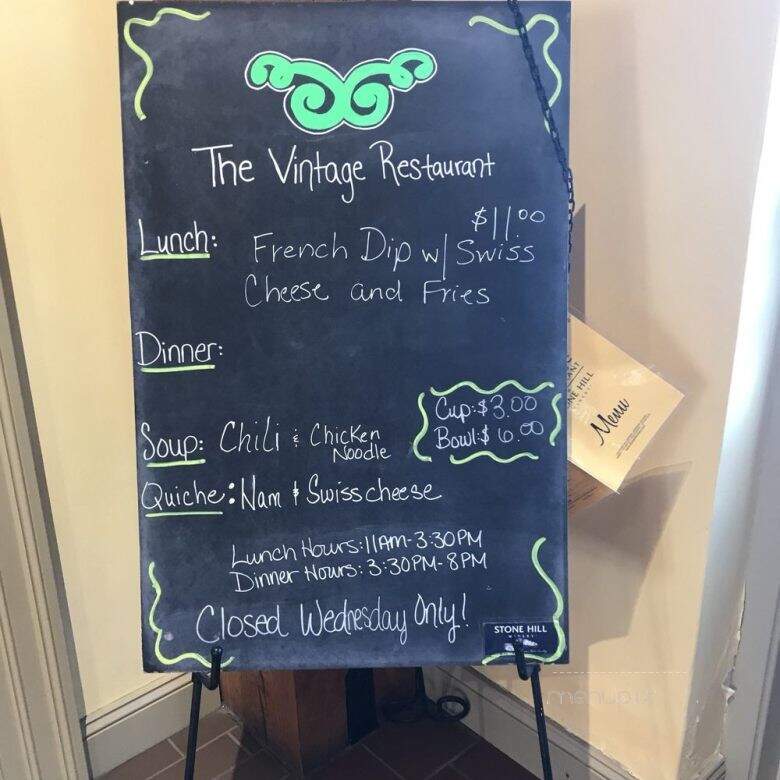 The Vintage Restaurant
$11.00
Lunch: French Dip w/ Swiss
Cheese and Fries
Dinner:
Cup: $3.00
Bowl: $6.00
Soup: Chili & Chicken
Noodle
Quiche: Ham & Swiss cheese
Lunch Hours: 11AM-3:30PM
Dinner Hours: 3:30PM-8PM
Closed Wednesday Only!
STONE HILL
WINERY
NE HILL
Menu
menupix